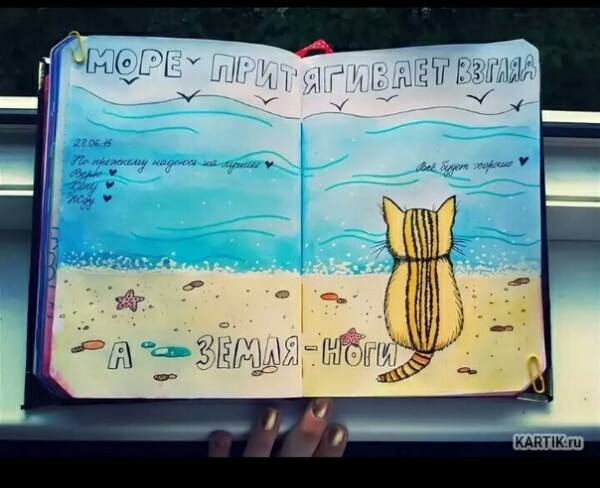 МОРЕ ПРИТЯГИВАЕТ ВЗГЛЯД
28.06.15
По прежнему надеюсь на лучшее ♥
Верю ♥
Хочу ♥
Жду ♥
Всё будет хорошо ♥
А ЗЕМЛЯ-НОГИ
KARTIK.ru